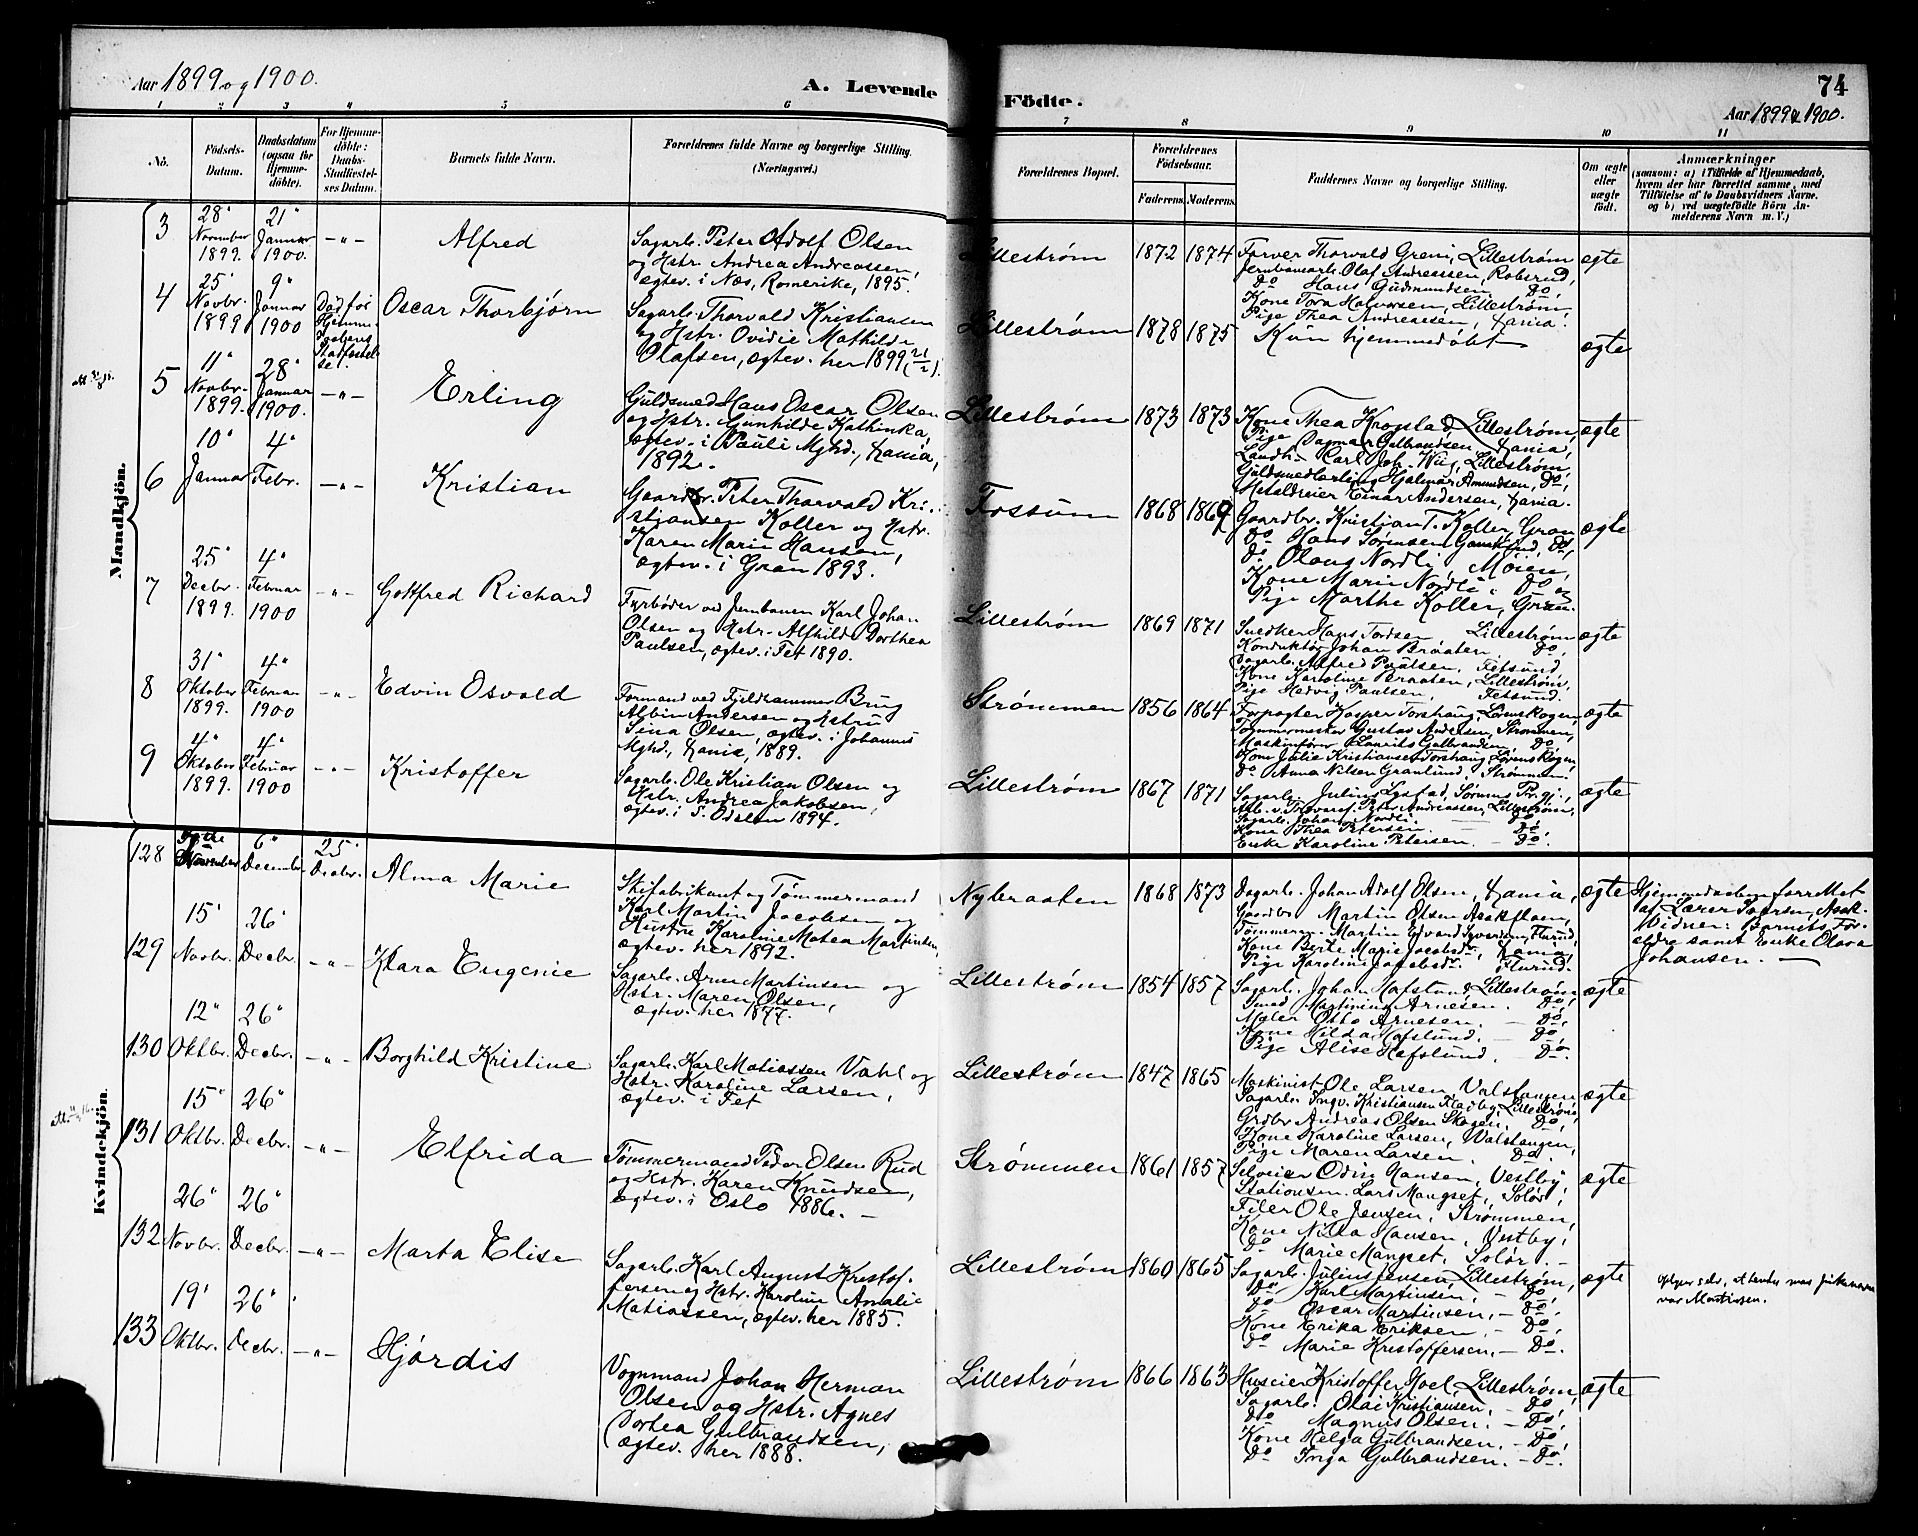 Aar 1899 og 1900.
A. Levende Födte.
74
Aar 1899 & 1900.
1 2 3 4 5 6 7 8 9 10 11
No.
Födsels-Datum.
Daabsdatum (ogsaa for Hjemme-döbte).
For Hjemme-döbte: Daabs-Stadfæstel-ses Datum.
Barnets fulde Navn.
Forældrenes fulde Navne og borgerlige Stilling.
(Næringsvei.)
Forældrenes Bopæl.
Forældrenes Födselsaar.
Faderens. Moderens.
Faddernes Navne og borgerlige Stilling.
Om ægte eller uægte født.
Anmærkninger
(saasom: a) i Tilfælde af Hjemmedaab,
hvem der har forrettet samme, med
Tilföielse af to Daabsvidners Navne.
og b) ved uægtefödte Börn An-
melderens Navn m. V.)
Mandkjön.
3
28' November 1899.
21' Januar 1900.
-"-
Alfred
Sagarb. Peter Adolf Olsen
og Hstr. Andrea Andreassen,
ægtev. i Næs, Romerike, 1895.
Lillestrøm
1872 1874
Farver Thorvald Greni, Lillestrøm
Jernbanearb. Olaf Andreassen, Robsrud,
Do Hans Gudmundsen Do,
Kone Tora Halvorsen, Lillestrøm
Pige Thea Andreassen, Xania.
ægte
4
25' Novbr. 1899
9' Januar 1900
Død før Hjemme-daabens Stadfæstel-se.
Oscar Thorbjørn
Sagarb. Thorvald Kristiansen
og Hstr. Ovidie Mathilde
Olafsen, ægtev. her 1899
Lillestrøm
1878 1875
Kun hjemmedøbt
ægte
5
11' Novbr. 1899
28' Januar 1900.
-"-
Erling
Guldsmed Hans Oscar Olsen
og Hstr. Gunhilde Kathinka,
ægtev. i Pauli Mghd., Xania,
1892.
Lillestrøm
1873 1873
Kone Thea Krogstad, Lillestrøm,
Pige Dagmar Gulbrandsen, Xania,
Landh. Carl Joh. Wiig, Lillestrøm,
Guldsmedlærling Hjalmar Amundsen, Do,
Metaldreier Einar Andersen, Xania.
ægte
6
10' Januar
4' Febr.
-"-
Kristian
Gaardbr. Peter Thorvald Kri-
stiansen Koller og Hstr.
Karen Marie Hansen,
ægtev. i Gran 1893.
Fossum
1868 1869
Gaardbr. Kristian T. Koller, Gran
Do Hans Sørensen Do,
Do Olaus Nordli, Moien,
Kone Marie Nordli, Do og
Pige Marthe Koller, Gran.
ægte
7
25' Decbr. 1899.
4' Februar 1900
-"-
Gottfred Richard
Fyrbøder ved Jernbanen Karl Johan
Olsen og Hstr. Alfhild Dorthea
Paulsen, ægtev. i Fet 1890.
Lillestrøm
1869 1871
Snedker Hans Tordsen, Lillestrøm
Konduktør Johan Braaten, Do,
Sagarb. Alfred Paulsen, Fetsund
Kone Karoline Braaten, Lillestrøm,
Pige Hedvig Paulsen, Fetsund.
ægte
8
31' Oktober 1899.
4' Februar 1900
-"-
Edvin Osvald
Formand ved Fjeldhammer Brug
Albin Andersen og Hstru
Sina Olsen, ægtev. i Johannes
Mghd., Xania, 1889.
Strømmen
1856 1864
Forpagter Kasper Torshaug, Lørenskogen,
Tømmermester Gustav Andersen, Strømmen,
Maskinfører Laurits Gulbrandsen, Do,
Kone Julie Kristiansen Torshaug, Lørenskogen,
Do Anna Nilsen Granlund, Strømmen
ægte
9
4' Oktober 1899.
4' Februar 1900
-"-
Kristoffer
Sagarb. Ole Kristian Olsen og
Hstr. Andrea Jakobsen,
ægtev. i S. Odalen 1894.
Lillestrøm
1867 1871
Sagarb. Julius Lystad, Sørums Pr.gj.,
Arb. v. Trævaref. Peter Andreassen, Lillestrøm,
Sagarb. Johan Nordli. Do,
Kone Thea Petersen. Do,
Enke Karoline Petersen. Do.
ægte
Kvindekjön.
128
November
6' December
25' Decbr.
Alma Marie
Skifabrikant og Tømmermand
Karl Martin Jacobsen og
Hustru Karoline Matea Martinsen,
ægtev. her 1892.
Nybraaten
1868 1873
Dagarb. Johan Adolf Olsen, Xania,
Gaardbr. Martin Olsen Asakfloen,
Tømmerm. Martin Edvard Syversen, Flurud,
Kone Berte Marie Jacobsdr., Xania,
Pige Karoline Jacobsdr. Flurud.
ægte
Hjemmedaaben forrettet
af Lærer Iversen, Asak.
Vidner: Barnets For-
ældre samt Enke Olava
Johansen.
129
15' Novbr.
26' Decbr.
-"-
Klara Eugenie
Sagarb. Arne Martinsen og
Hstr. Maren Olsen,
ægtev. her 1877.
Lillestrøm
1854 1857
Sagarb. Johan Hafslund, Lillestrøm,
Smed Martinius Arnesen. Do,
Maler Otto Arnesen. Do,
Kone Hilda Hafslund. Do,
Pige Alise Hafslund. Do.
ægte
130
12' Oktbr.
26' Decbr.
-"-
Borghild Kristine
Sagarb. Karl Matiassen Vahl og
Hstr. Karoline Larsen,
ægtev. i Fet
Lillestrøm
1847 1865
Maskinist Ole Larsen, Valstangen,
Sagarb. Ingv. Kristiansen Fladby, Lillestrøm,
Grdbr. Andreas Olsen Skogen, Do,
Kone Karoline Larsen, Valstangen,
Pige Maren Larsen. Do.
ægte
131
15' Oktbr.
26' Decbr.
-"-
Elfrida
Tømmermand Peder Olsen Rud
og Hstr. Karen Knudsen,
ægtev. i Oslo 1886.
Strømmen
1861 1857
Selveier Odin Hansen, Vestby,
Stationsm. Lars Mangset, Solør,
Filer Ole Jensen, Strømmen,
Kone Hansen, Vestby,
Do Marie Mangset, Solør.
ægte
132
26' Novbr.
26' Decbr.
-"-
Marta Elise
Sagarb. Karl August Kristof-
fersen og Hstr. Karoline Amalie
Matiassen, ægtev. her 1885.
Lillestrøm
1860 1865
Sagarb. Julius Jensen, Lillestrøm,
Do Karl Martinsen, Do,
Do Oscar Martinsen, Do,
Kone Erika Eriksen, Do,
Do Marie Kristoffersen, Do.
ægte
Opgav selv, at hendes Pikenavn
var Martinsen.
133
19' Oktbr.
26' Decbr.
-"-
Hjørdis
Vognmand Johan Herman
Olsen og Hstr. Agnes
Dorthea Gulbrandsen,
ægtev. her 1888.
Lillestrøm
1866 1863
Huseier Kristoffer Hoel, Lillestrøm,
Sagarb. Olai Kristiansen, Do,
Do Magnus Olsen. Do,
Kone Helga Gulbrandsen. Do,
Do Inga Gulbrandsen. Do.
ægte